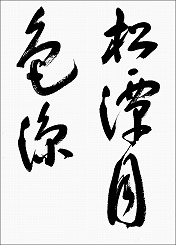 松潭月
色涼